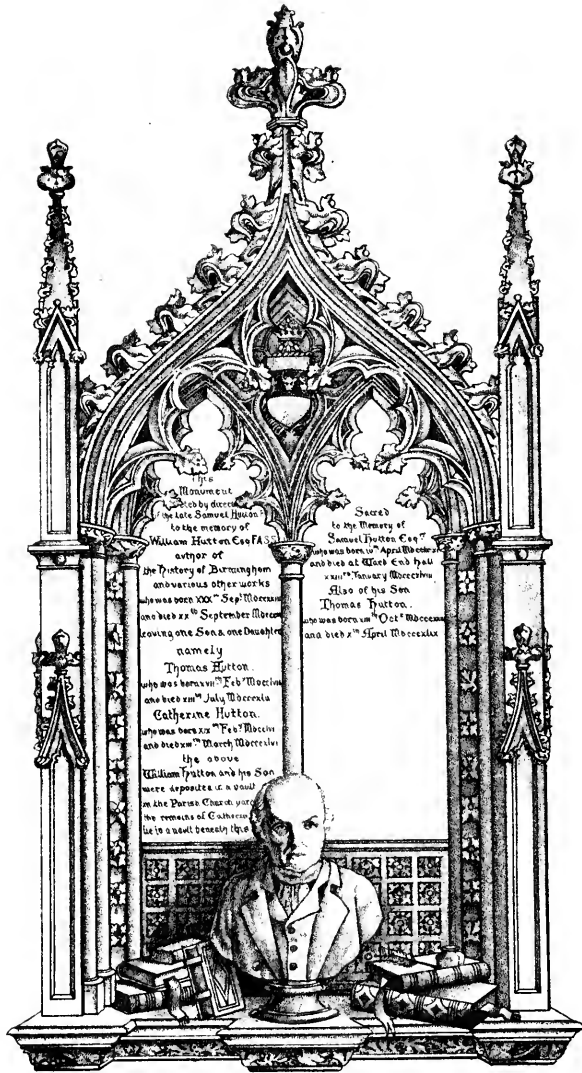 This
Monument
by
of the late Samuel Hutton
to the memory of
William Hutton Esq FASS
author of
the History of Birmingham
and various other works
who was born XXXth Sept
and died xxth September
leaving one Son & one Daughter
namely
Thomas Hutton.
who was born xviith Feby
and died xiiith July Mdcccxlv
Catherine Hutton.
who was born xixth Feby
and died xiiith March Mdcccxlvi
the above
William Hutton and his Son
were deposited in a vault
in the Parish Church
the remains of
lie in a vault beneath this
Sacred
to the Memory of
Samuel Hutton Esqre
who was born April
and died at Ward End Hall
January
Also of his Son
Thomas Hutton.
who was born Octr
and died xth April Mdcccxlix